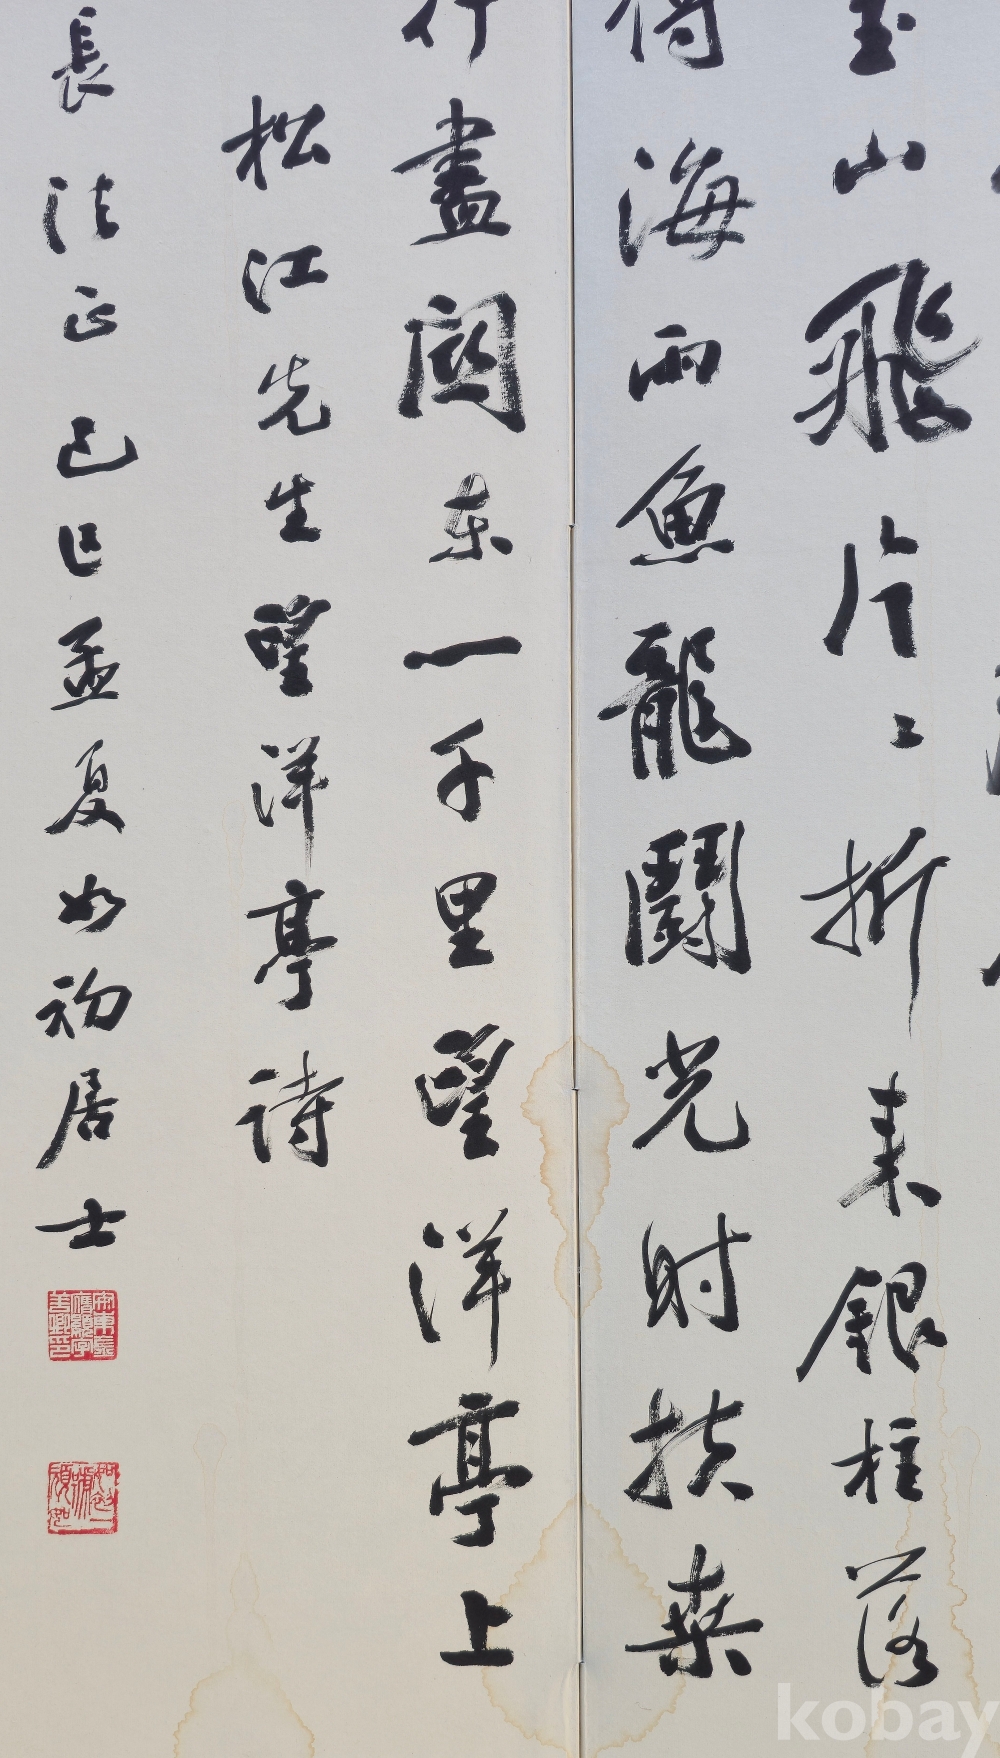 玉山飛片々折來銀柱落
海雨魚龍鬪光射扶桑
行盡關東一千里望洋亭上
松江先生望洋亭詩
長法正己巳孟夏如初居士
kobay